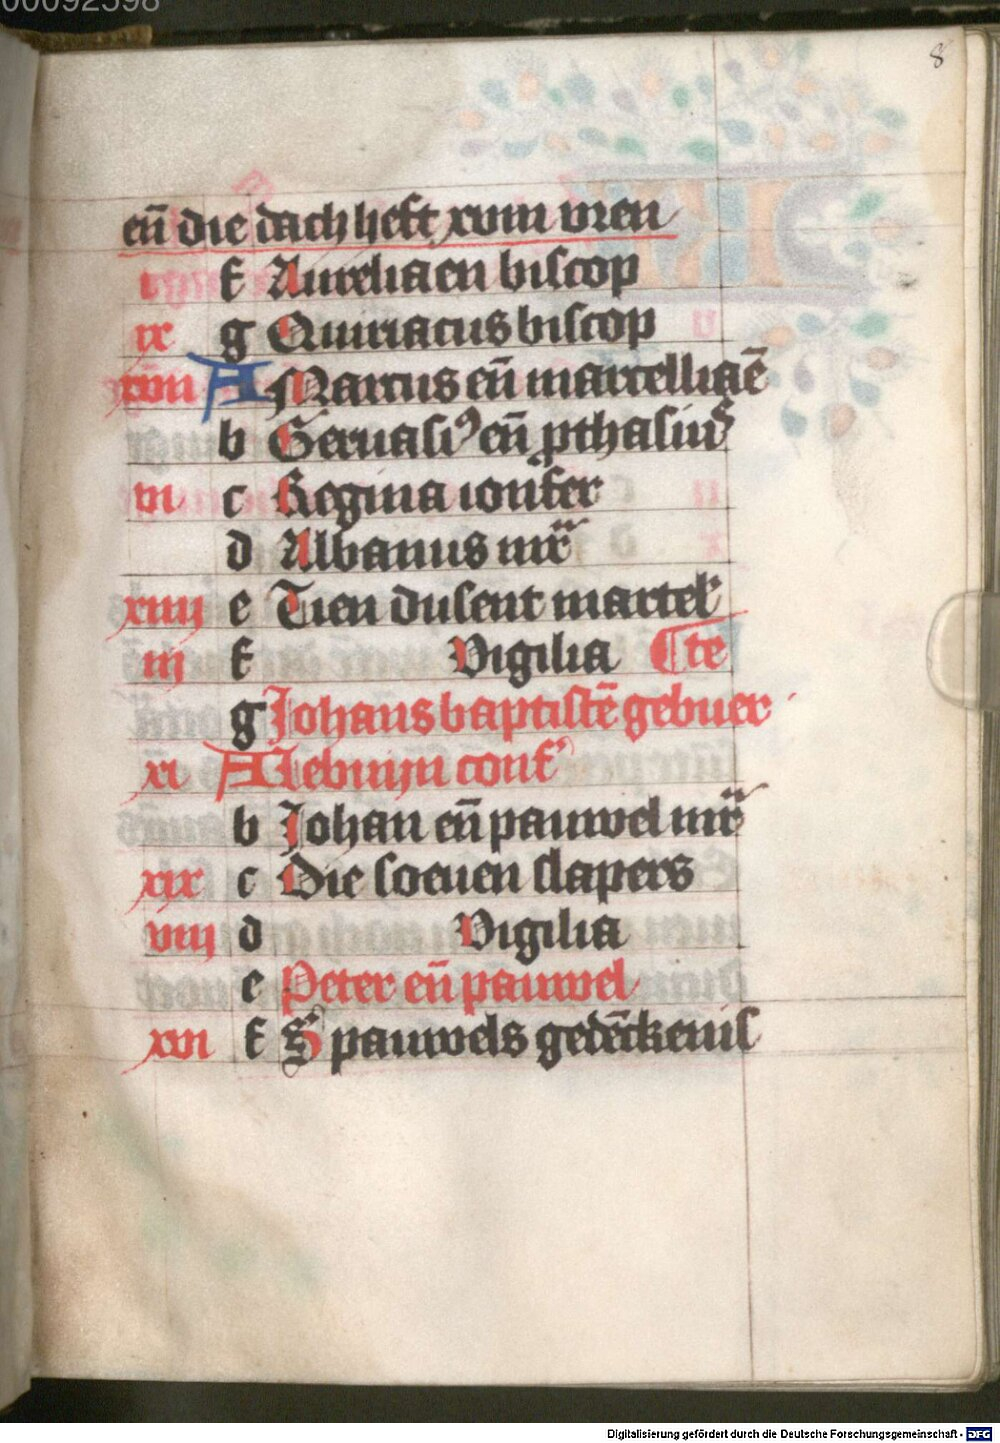 00092598
8
en̄ die dach heft xviii vren
i f Aureliaen biscop
ix g Quiriacus biscop
xvii A Marcus en̄ marcelliaē
b Geruasi⁹ en̄ ꝓthasius
vi c Regina ionfer
d Albanus mr̄
xiiii e Tien dusent martel'
iii f Vigilia
g Johans baptistē gebuer ¶te
xi A Lebuijn conf'
b Johan en̄ pauwel mr̄
xix c Die soeuen slapers
viii d Vigilia
e Peter en̄ pauwel
xvi f S pauwels gedēckenis
Digitalisierung gefördert durch die Deutsche Forschungsgemeinschaft - DFG